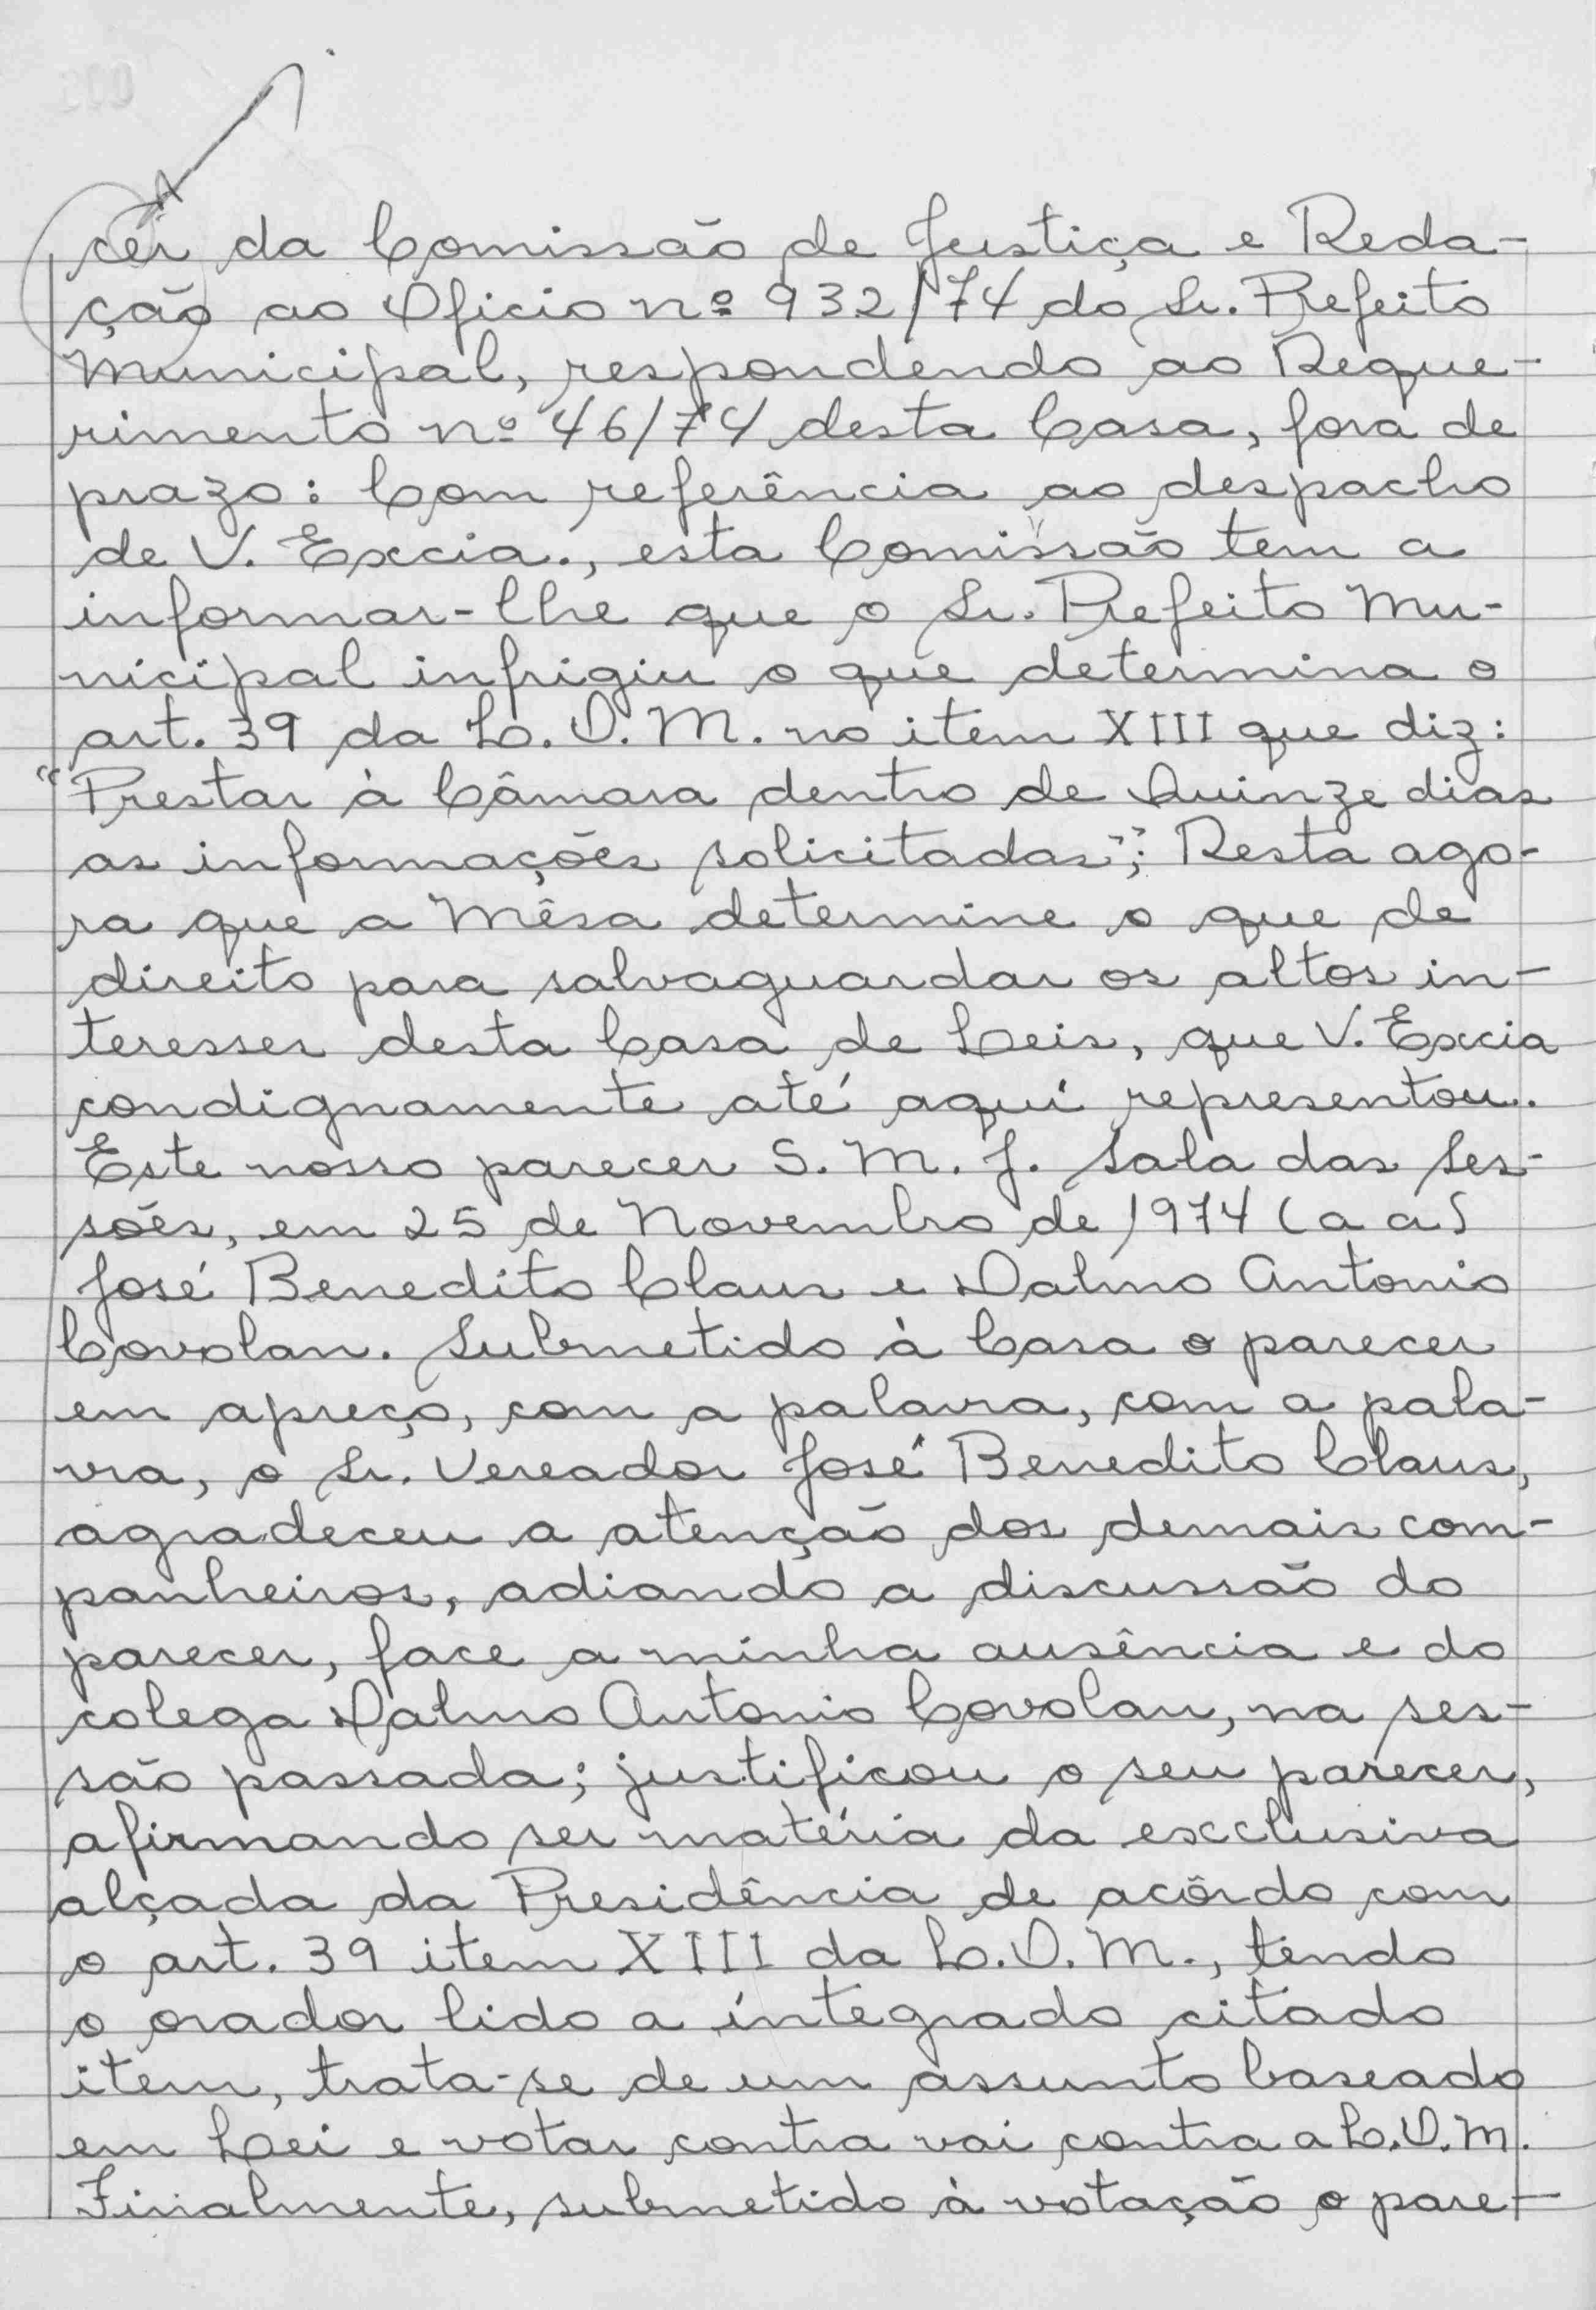 cer da Comissão de Justiça e Reda-
ção ao Oficio nº 932/74 do Sr. Prefeito
Municipal, respondendo ao Reque-
rimento nº 46/74 desta Casa, fora de
prazo: Com referência ao despacho
de V. Excia., esta Comissão tem a
informar-lhe que o Sr. Prefeito Mu-
nicipal infrigiu o que determina o
art. 39 da L.O.M. no item XIII que diz:
"Prestar à Câmara dentro de Quinze dias
as informações solicitadas"; Resta ago-
ra que a Mêsa determine o que de
direito para salvaguardar os altos in-
teresses desta Casa de Leis, que V. Excia
condignamente até aqui representou.
Este nosso parecer S.M.J. Sala das Ses-
sões, em 25 de Novembro de 1974 (a a)
José Benedito Claus e Dalmo Antonio
Covolan. Submetido à Casa o parecer
em apreço, com a palavra, com a pala-
vra, o Sr. Vereador José Benedito Claus,
agradeceu a atenção dos demais com-
panheiros, adiando a discussão do
parecer, face a minha ausência e do
colega Dalmo Antonio Covolan, na ses-
são passada; justificou o seu parecer,
afirmando ser matéria da exclusiva
alçada da Presidência de acôrdo com
o art. 39 item XIII da L.O.M., tendo
o orador lido a íntegra do citado
item, trata-se de um assunto baseado
em Lei e votar contra vai contra a L.O.M.
Finalmente, submetido à votação o pare-